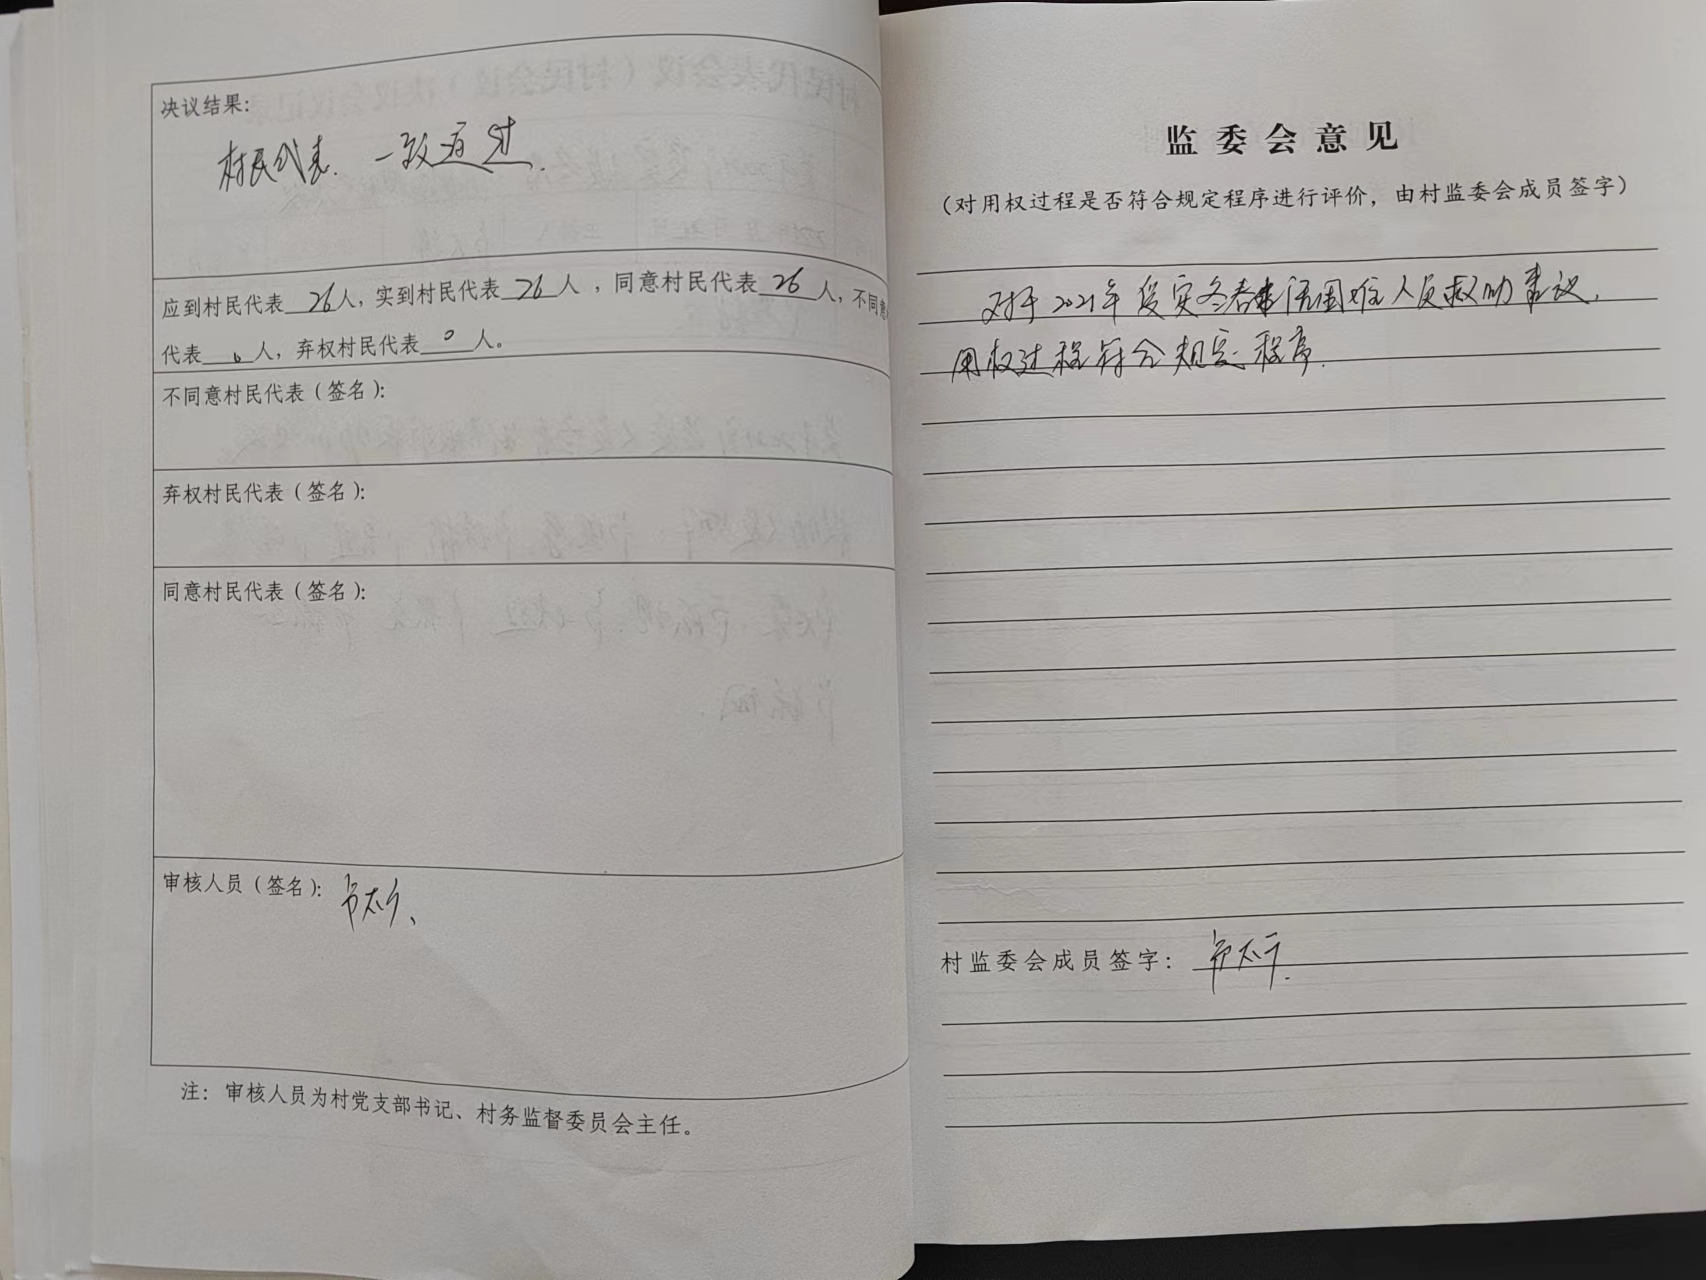 决议结果：
村民代表．一致通过．
应到村民代表26人，实到村民代表26人，同意村民代表26人，不同意
代表0人，弃权村民代表0人。
不同意村民代表（签名）：
弃权村民代表（签名）：
同意村民代表（签名）：
审核人员（签名）：
注：审核人员为村党支部书记、村务监督委员会主任。
监委会意见
（对用权过程是否符合规定程序进行评价，由村监委会成员签字）
对于2021年受灾冬春生活困难人员救助事议，
用权过程符合规定程序．
村监委会成员签字：